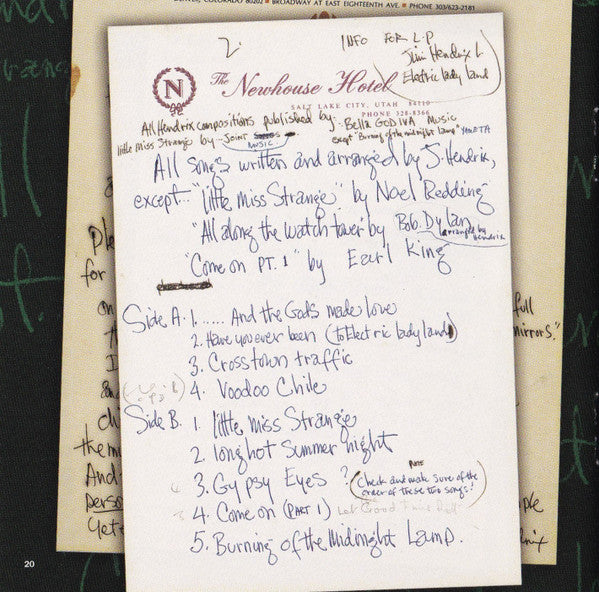 DENVER, COLORADO 80202 • BROADWAY AT EAST EIGHTEENTH AVE. • PHONE 303/623-2181
2.
INFO FOR L.P
Jimi Hendrix
Electric lady land
N
The Newhouse Hotel
SALT LAKE CITY, UTAH 84110
PHONE 328-8366
All Hendrix compositions published by - Bella GODIVA MUSIC
except "Burning of the midnight Lamp"
little miss Strange by - Joint
MUSIC
All songs written and arranged by J. Hendrix,
except... "little Miss Strange" by Noel Redding
"All along the watch tower" by Bob. Dylan
arranged by Hendrix
"Come on PT. 1" by Earl King
Side A. 1. ...... And the Gods made love
2. Have you ever been (to Electric lady land)
3. Crosstown traffic
4. Voodoo Chile
Side B. 1. little Miss Strange
2. long hot Summer night
3. Gypsy Eyes ?
(check and make sure of the
order of these two songs.)
4. Come on (PART 1) Let Good Times Roll
5. Burning of the Midnight Lamp.
for
full
mirrors."
And
perso
20